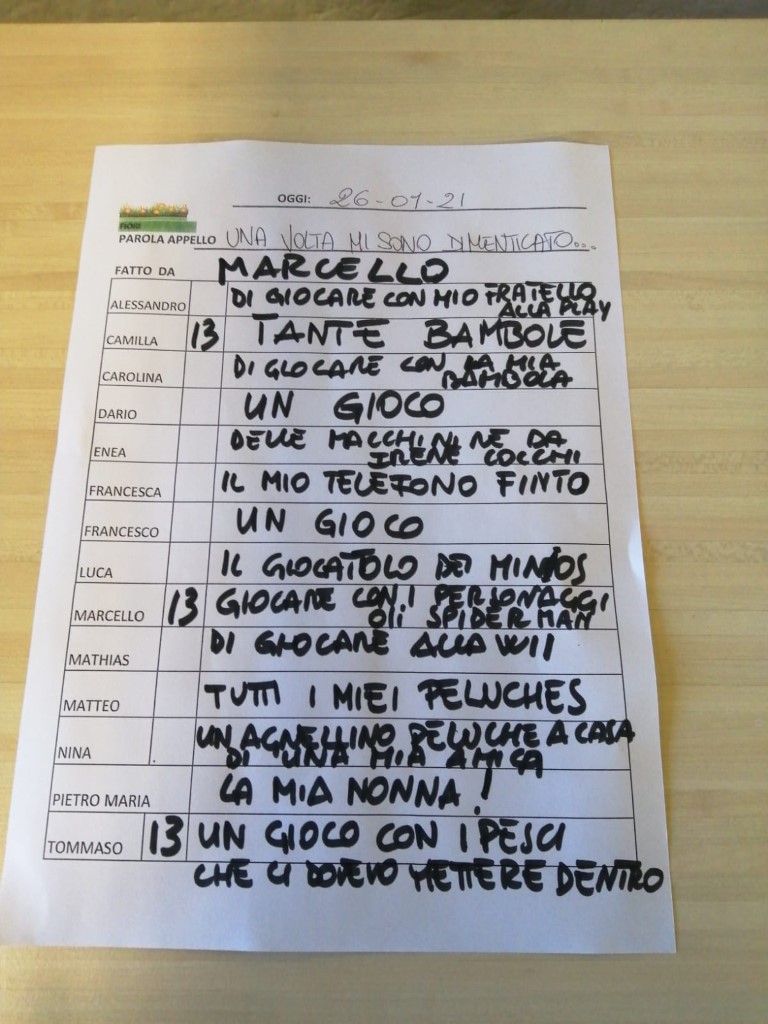 OGGI: 26-01-21
FIORI
PAROLA APPELLO UNA VOLTA MI SONO DIMENTICATO...
FATTO DA MARCELLO
ALESSANDRO DI GIOCARE CON MIO FRATELLO
ALLA PLAY
CAMILLA 13 TANTE BAMBOLE
CAROLINA DI GIOCARE CON LA MIA
BAMBOLA
DARIO UN GIOCO
ENEA DELLE MACCHININE DA
IRENE COCCHI
FRANCESCA IL MIO TELEFONO FINTO
FRANCESCO UN GIOCO
LUCA IL GIOCATOLO DEI MINIOS
MARCELLO 13 GIOCARE CON I PERSONAGGI
DI SPIDER MAN
MATHIAS DI GIOCARE ALLA WII
MATTEO TUTTI I MIEI PELUCHES
NINA UN AGNELLINO PELUCHE A CASA
DI UNA MIA AMICA
PIETRO MARIA LA MIA NONNA!
TOMMASO 13 UN GIOCO CON I PESCI
CHE CI DOVEVO METTERE DENTRO